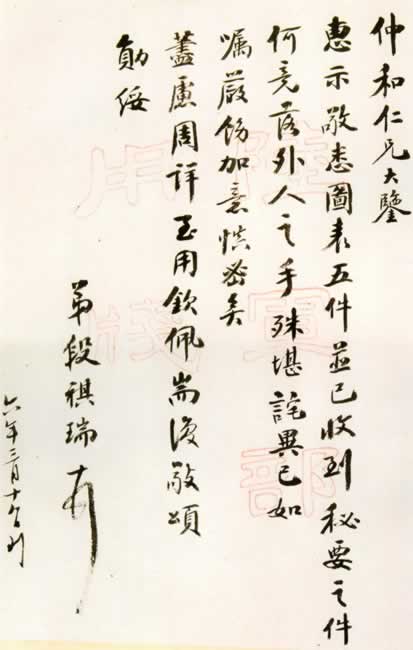 仲和仁兄大鑒
惠示敬悉圖表五件並已收到秘要之件
何竟落外人之手殊堪詫異已如
囑嚴飭加意慎密矣
藎慮周詳至用欽佩耑復敬頌
勛綏
弟段祺瑞
六年三月十
陸軍部
用箋